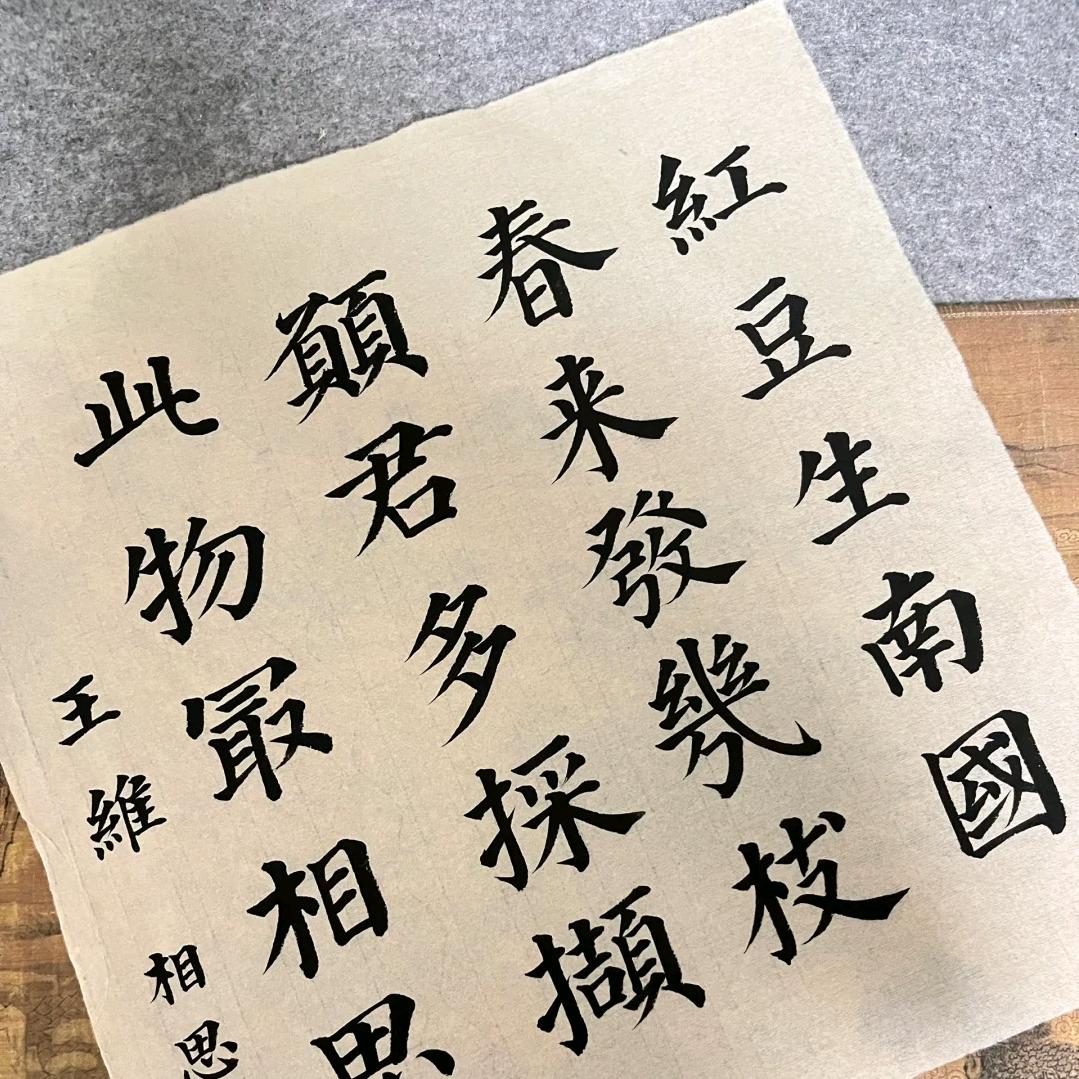 紅豆生南國
春来發幾枝
願君多採擷
此物最相思
王維
相思